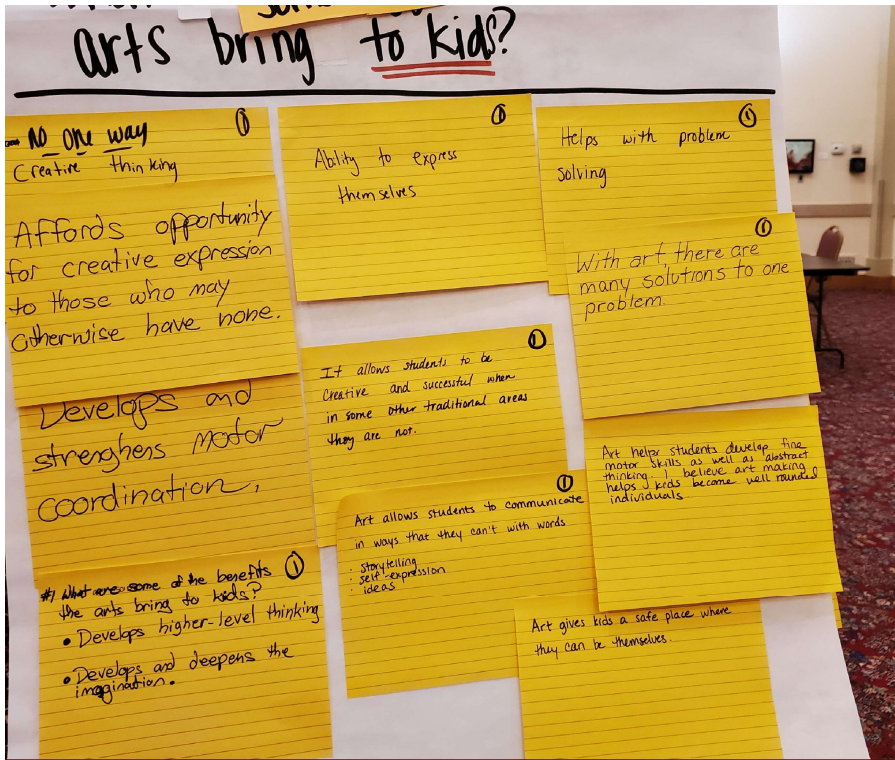 arts bring to kids?
- No one way
Creative thinking
①
Affords opportunity
for creative expression
to those who may
otherwise have none.
Develops and
strenghens motor
coordination,
#1 What are some of the benefits
the arts bring to kids?
①
• Develops higher-level thinking
• Develops and deepens the
imagination.
Ability to express
themselves
①
It allows students to be
creative and successful when
in some other traditional areas
they are not.
①
Art allows students to communicate
in ways that they can't with words
①
· storytelling
· self-expression
· ideas
Art gives kids a safe place where
they can be themselves.
Helps with problem
solving
①
With art, there are
many solutions to one
problem.
①
Art helps students develop fine
motor skills as well as abstract
thinking. I believe art making
helps kids become well rounded
individuals.